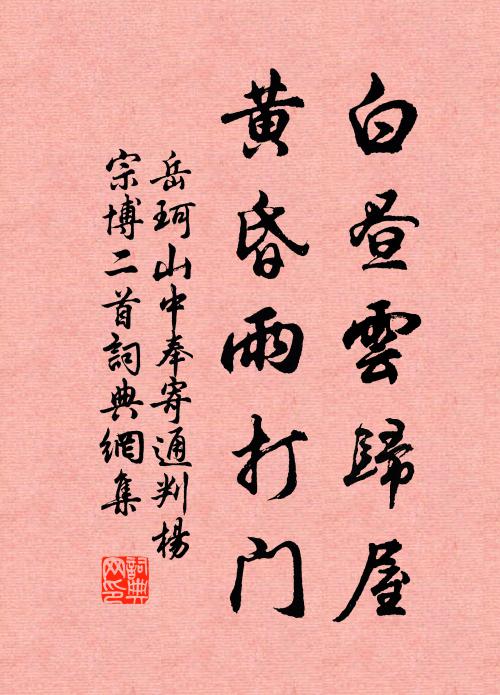 白昼雲歸屋
黄昏雨打门
岳珂山中奉寄通判楊
宗博二首詞典網集
詞典
网印